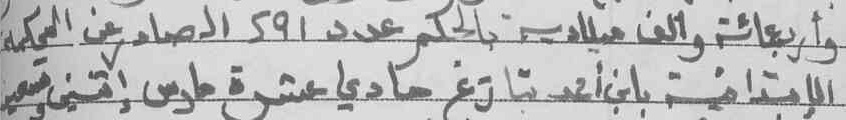 وأربعمائة وألف ميلادية بالحكم عدد 291 الصادر عن المحكمة
الابتدائية بابن أحمد بتاريخ حادي عشرة مارس إثنين وتسعين